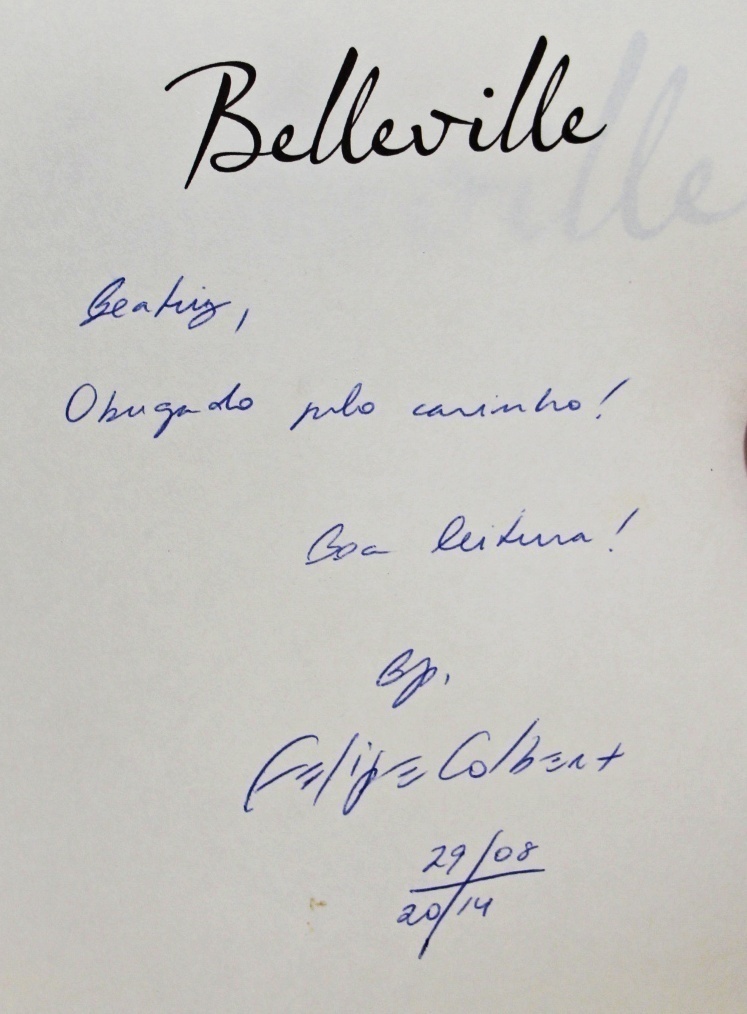 Belleville
Beatriz,
Obrigado pelo carinho!
Boa leitura!
Bj,
Felipe Colbert
29/08
2014